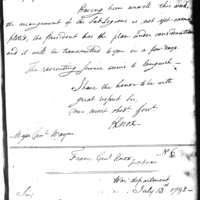 Having been unwell this week,
the arrangement of the Sub Legions is not yet com-
pleted, the President has the plan under consideration
and it will be transmitted to you in a few days.
The recruiting service seems to languish.
I have the honor to be with
great respect Sir,
Your most obed. Servt.
HKnox.
Major Genl. Wayne
From Genl. Knox, No. 6
War department
July 13th 1792
Sir,